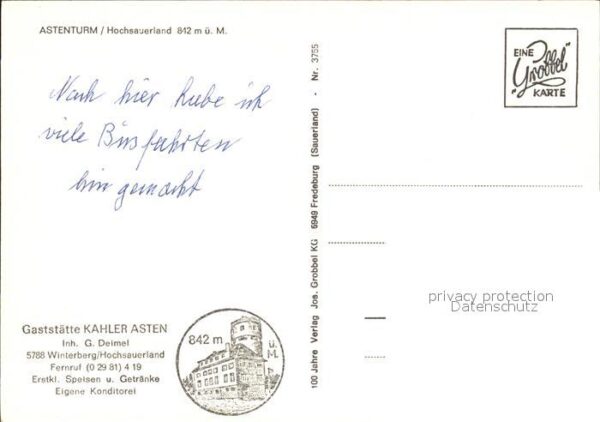 ASTENTURM / Hochsauerland 842 m ü. M.
EINE
"Grobbel"
KARTE
Nach hier habe ich
viele Busfahrten
hin gemacht
100 Jahre Verlag Jos. Grobbel KG 5949 Fredeburg (Sauerland) · Nr. 3755
privacy protection
Datenschutz
Gaststätte KAHLER ASTEN
Inh. G. Deimel
5788 Winterberg/Hochsauerland
Fernruf (0 29 81) 4 19
Erstkl. Speisen u. Getränke
Eigene Konditorei
842 m ü. M.